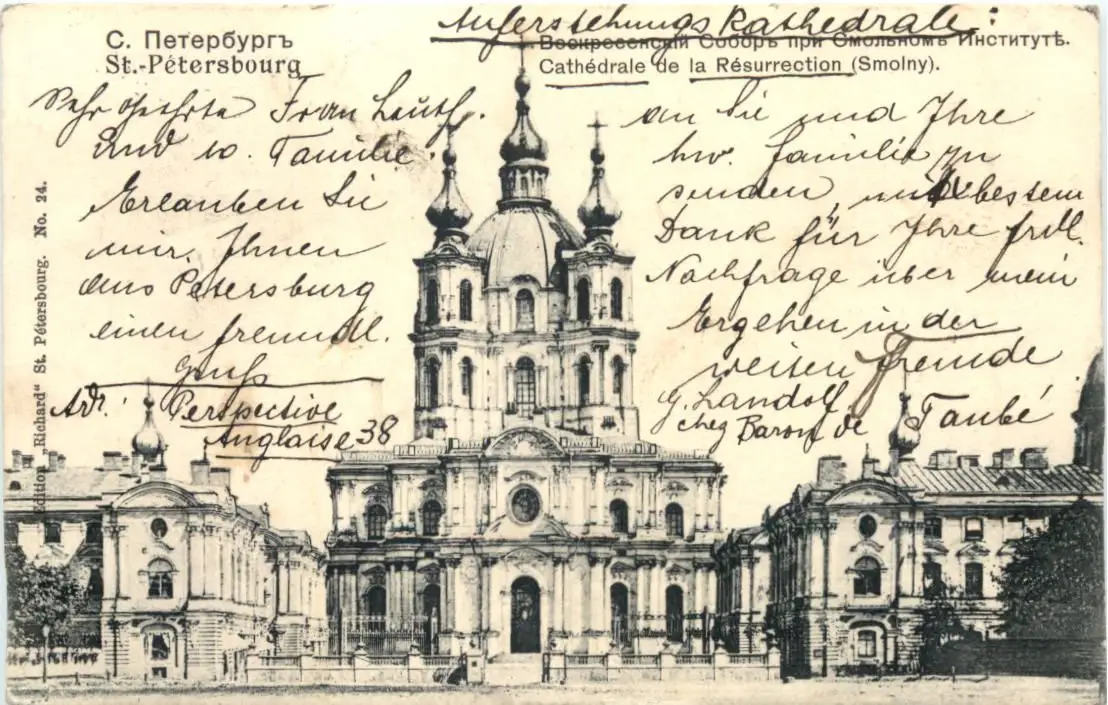 Auferstehungs Kathedrale:
С. Петербургъ
St.-Pétersbourg
Воскресенскiй Соборъ при Смольномъ Институтѣ.
Cathédrale de la Résurrection (Smolny).
Sehr Geehrte Frau Leuth.
und w. Familie
Erlauben Sie
mir, Ihnen
aus Petersburg
einen freundl.
Gruß
Adr. Perspective
Anglaise 38
an Sie und Ihre
hw. familie zu
senden, mit bestem
Dank für Ihre frdl.
Nachfrage über mein
Ergehen in der
weiten fremde
G. Landolf
chez Baron de Taubé
Edition „Richard“ St. Pétersbourg. No. 24.